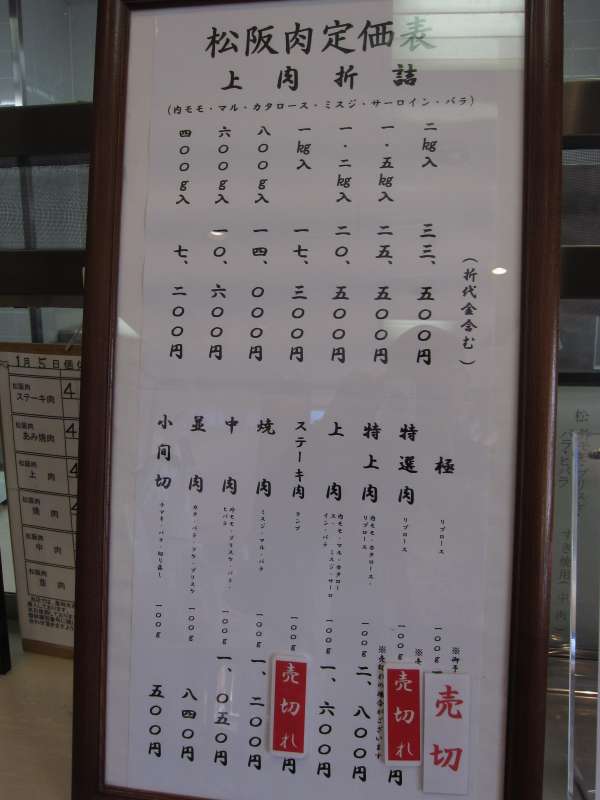 松阪肉定価表
上肉折詰
(内モモ・マル・カタロース・ミスジ・サーロイン・バラ)
(折代金含む)
二kg入 三三、五〇〇円
一・五kg入 二五、五〇〇円
一・二kg入 二〇、五〇〇円
一kg入 一七、三〇〇円
八〇〇g入 一四、〇〇〇円
六〇〇g入 一〇、六〇〇円
四〇〇g入 七、二〇〇円
極 リブロース 一〇〇g
売切
特選肉 リブロース 一〇〇g 円
売切れ
特上肉 内モモ・カタロース・リブロース 一〇〇g 二、八〇〇円
上肉 内モモ・マル・カタロース・ミスジ・サーロイン・バラ 一〇〇g 一、六〇〇円
ステーキ肉 ランプ 一〇〇g 円
売切れ
焼肉 ミスジ・マル・バラ 一〇〇g 一、二〇〇円
中肉 外モモ・ブリスケ・バラ・ヒバラ 一〇〇g 一、〇五〇円
並肉 カタ・バラ・ウデ・ブリスケ 一〇〇g 八四〇円
小間切 一〇〇g 五〇〇円
1月5日
松阪肉
ステーキ肉 4
松阪肉
あみ焼肉 4
松阪肉
上肉
松阪肉
焼肉
松阪肉
中肉
松阪肉
並肉